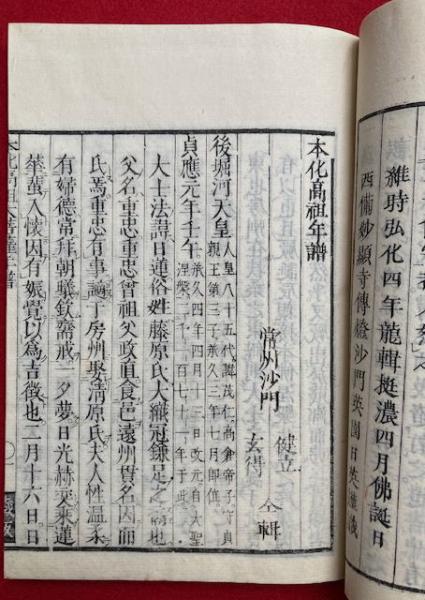 維時弘化四年龍輯挺濃四月佛誕日
西備妙顯寺傳燈沙門英園日英
本化高祖年譜
常州沙門
健立
玄得
仝輯
後堀河天皇
人皇八十五代諱茂仁高倉帝子守貞
親王第三子承久三年七月即位
貞應元年壬午
承久四年四月十三日改元自大聖
涅槃二千一百七十一年于此
大士法諱日蓮俗姓藤原氏大織冠鎌足之裔也
父名重忠重忠曾祖父政直食邑遠州貫名因而
氏焉重忠有事謫于房州娶清原氏夫人性温柔
有婦德常拜朝曦欽齋戒一夕夢日光赫奕乘蓮
華蜚入懷因有娠覺以為吉徵也二月十六日日